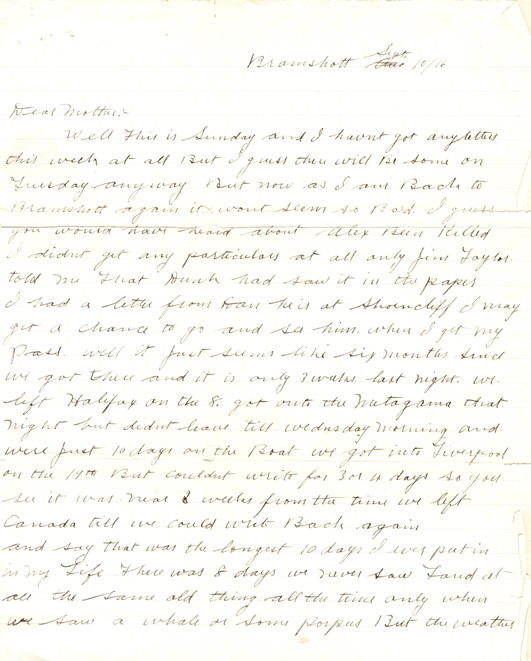 Bramshott Sept. 10/16
Dear Mother:-
Well This is Sunday and I havnt got any letters
this week at all But I guess there will Be some on
Tuesday anyway But now as I am Back to
Bramshott again it wont seem so Bad. I guess
you would have heard about Alex Been Killed
I didnt get any particulars at all only Jim Taylor
told me That had saw it in the paper
I had a letter from Dan he is at Shorncliff I may
get a chance to go and see him when I get my
Pass. well it Just seems like six months since
we got There and it is only 3 weeks last night. we
left Halifax on the 8. got onto the Metagama that
night but didnt leave till wednesday Morning and
were Just 10 days on the Boat we got into Liverpool
on the But couldnt write for 3 or 4 days so you
see it was near 2 weeks from the time we left
Canada till we could write Back again
and say that was the longest 10 days I ever put in
in my Life There was 8 days we never saw Land at
all the same old thing all the time only when
we saw a whale or some porpus But the weather